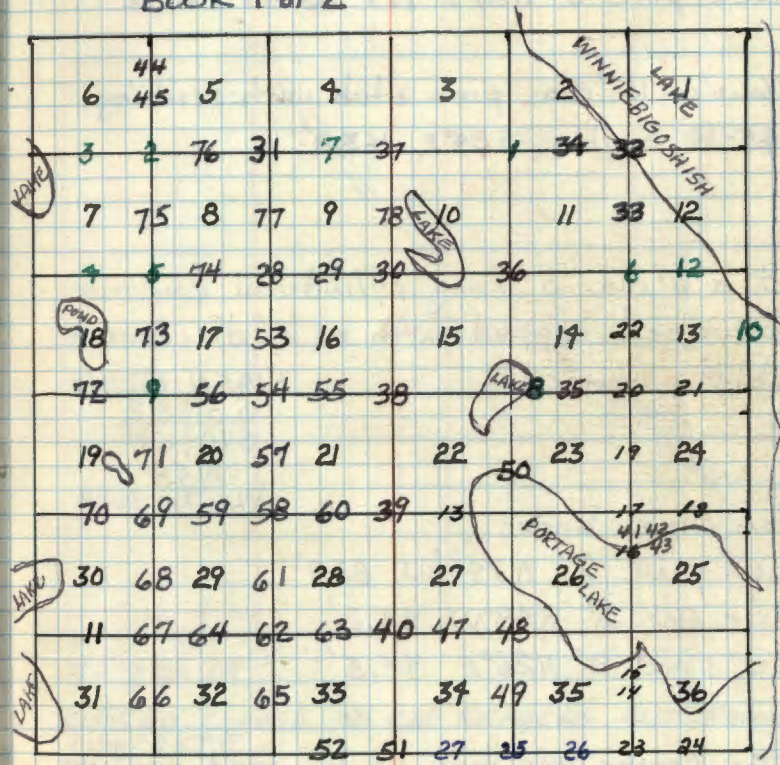 BOOK 1 of 2
44
6 45 5 4 3 2 1
WINNIEBIGOSHISH
LAKE
3 2 76 31 7 37 1 34 32
LAKE
7 75 8 77 9 78 LAKE 10 11 33 12
4 5 74 28 29 30 36 6 12
POND
18 73 17 53 16 15 14 22 13 10
72 9 56 54 55 38 LAKE 8 35 20 21
19 71 20 57 21 22 23 19 24
50
70 69 59 58 60 39 13 17 18
41 42
16 43
PORTAGE
LAKE
LAKE 30 68 29 61 28 27 26 25
11 67 64 62 63 40 47 48
15
LAKE 31 66 32 65 33 34 49 35 14 36
52 51 27 25 26 23 24